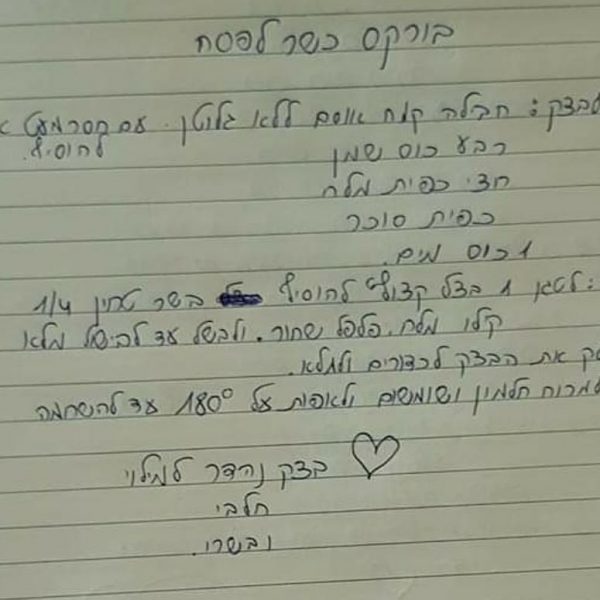 בורקס כשר לפסח
לבצק: חבילה קמח אוסם ללא גלוטן. עם חסר מעט
להוסיף.
רבע כוס שמן
חצי כפית מלח
כפית סוכר
1 כוס מים.
: לטגן 1 בצל קצוץ להוסיף בשר טחון 1/4
קילו מלח. פלפל שחור. ולבשל עד לבישול מלא
את הבצק לכדורים ולמלא.
למרוח חלמון ושומשום ולאפות על 180° עד להשחמה
בצק נהדר למילוי
חלבי
ובשרי.